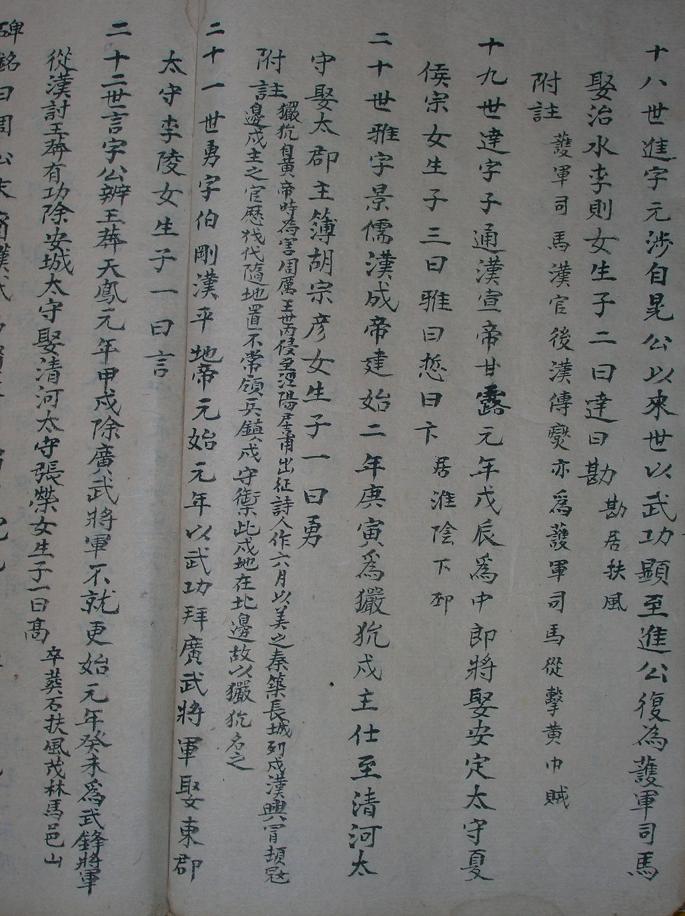 十八世進字元涉自昆公以來世以武功顯至進公復為護軍司馬
娶治水李則女生子二曰達曰勘 勘居扶風
附註 護軍司馬漢官後漢傅燮亦為護軍司馬從擊黃巾賊
十九世達字子通漢宣帝甘露元年戊辰為中郎將娶安定太守夏
侯宗女生子三曰雅曰愻曰卞 居淮陰下邳
二十世雅字景儒漢成帝建始二年庚寅為玁狁戍主仕至清河太
守娶太郡主簿胡宗彥女生子一曰勇
附註 玁狁自黃帝時為害周厲王世丙侵至涇陽居甫出征詩人作六月以美之秦築長城列戍漢興冒頓冠
邊戍主之官歷伐代隨地置不常領兵鎮戍守禦此戍地在北邊故以玁狁名之
二十一世勇字伯剛漢平地帝元始元年以武功拜廣武將軍娶東郡
太守李陵女生子一曰言
二十二世言字公辨王莽天鳳元年甲戍除廣武將軍不就更始元年癸未為武鋒將軍
從漢討王莽有功除安城太守娶清河太守張榮女生子一曰高 卒葬石扶風茂林馬邑山
碑銘曰周公末裔漢武